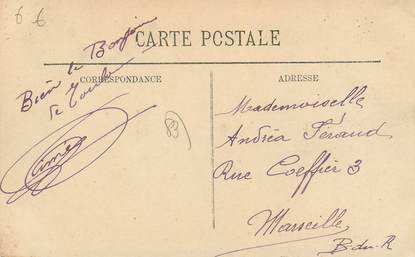 6 6
CARTE POSTALE
CORRESPONDANCE
Bien le Bonjour
de Toulon
Aimé
83
ADRESSE
Mademoiselle
Andréa Féraud
Rue Coeffier 3
Marseille
B du R